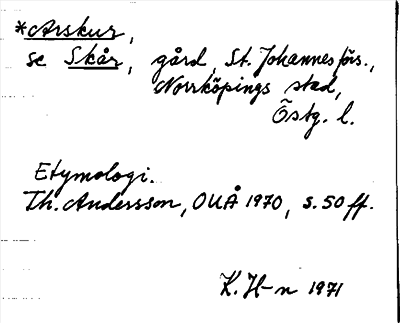 *Arskur,
se Skår, gård, St. Johannes förs.,
Norrköpings stad,
Östg. l.
Etymologi.
Th. Andersson, OUÅ 1970, s. 50 ff.
K. H-n 1971